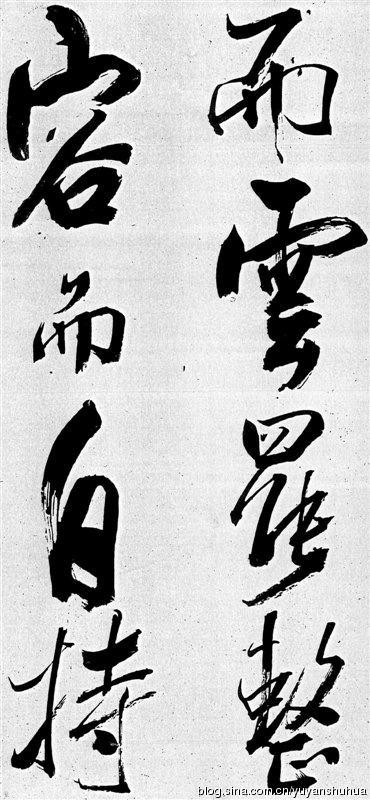 雨雲罷整
容而自持
blog.sina.com.cn/yuyanshuhua